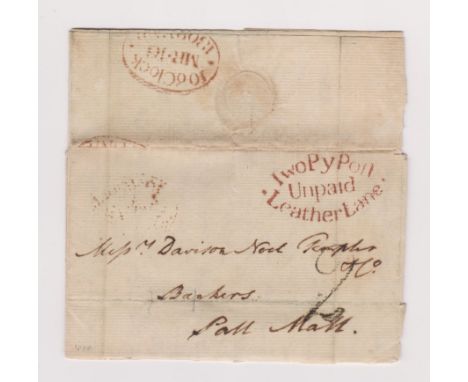 10 o Clock
MR·16
Two Py Post
Unpaid
Leather Lane
Messrs Davison Noel Templer
& Co.
Bankers
Pall Mall.